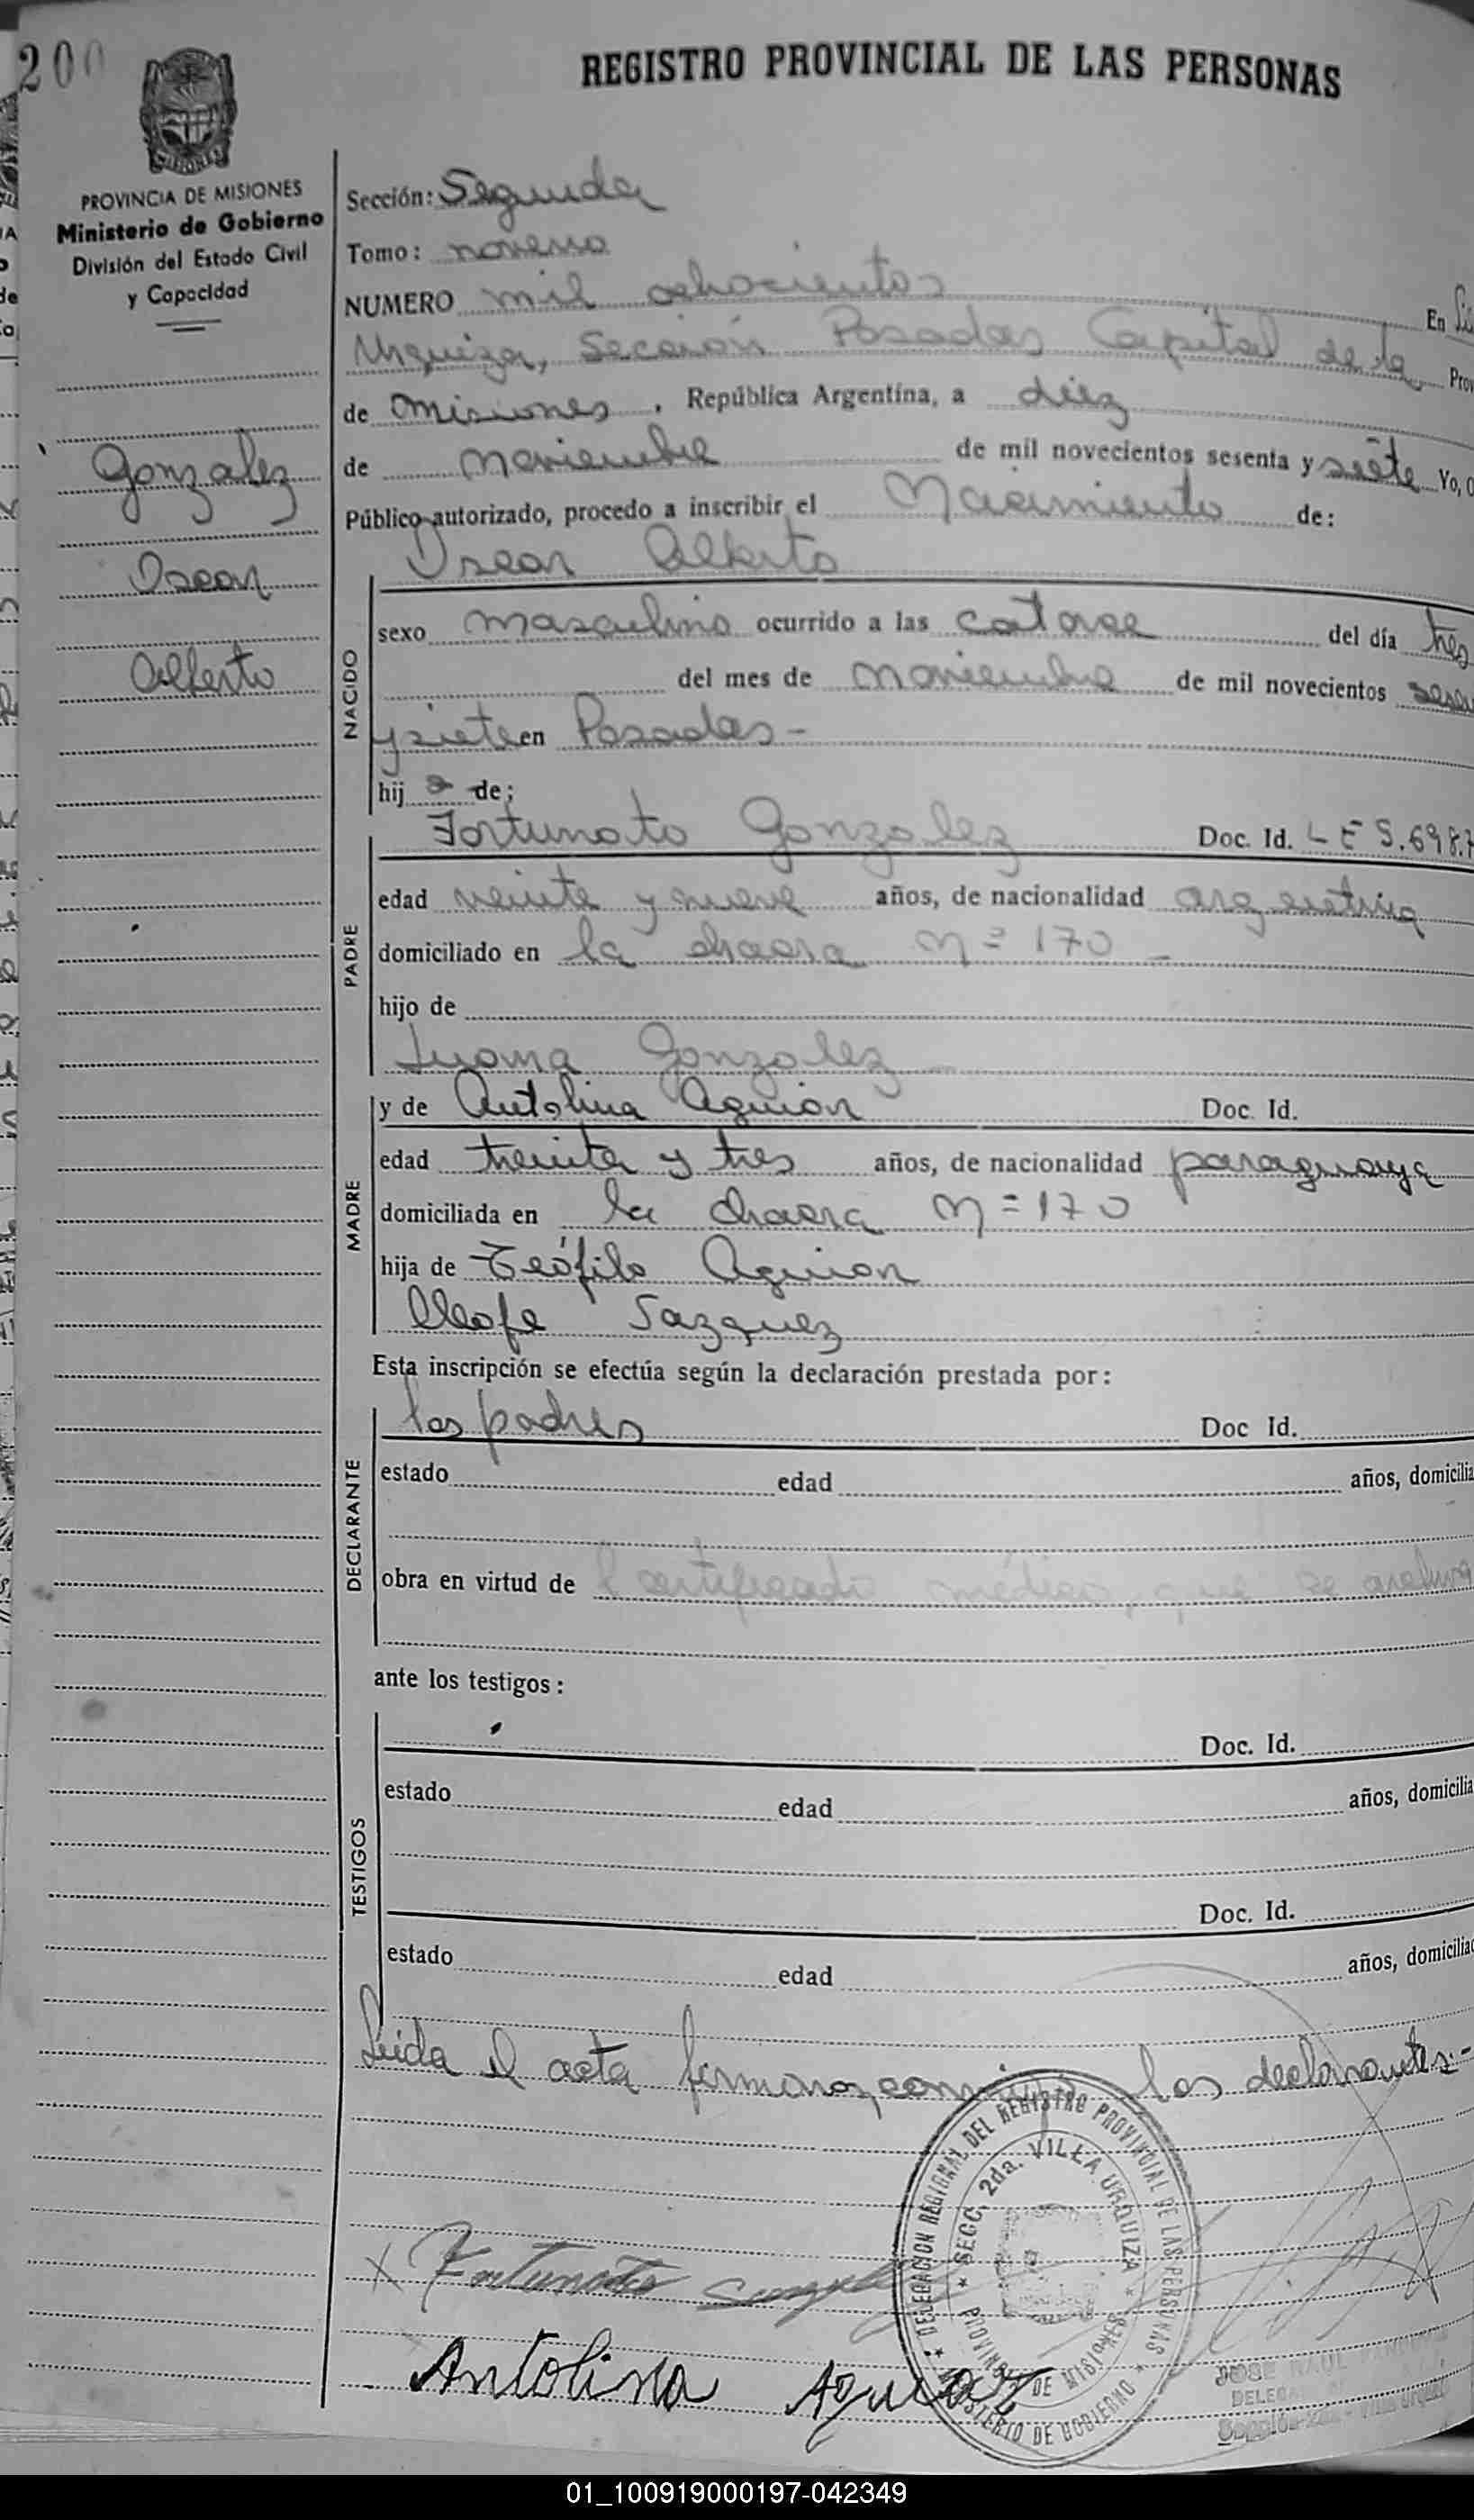 200
REGISTRO PROVINCIAL DE LAS PERSONAS
PROVINCIA DE MISIONES
Ministerio de Gobierno
División del Estado Civil
y Capacidad
Gonzalez
Oscar
Alberto
Sección: Segunda
Tomo: noveno
NUMERO mil ochocientos En
Urquiza, Sección Posadas Capital de la Prov
de Misiones, República Argentina, a diez
de Noviembre de mil novecientos sesenta y siete Yo, O
Público autorizado, procedo a inscribir el Nacimiento de:
Oscar Alberto
NACIDO
sexo masculino ocurrido a las catorce del día tres
del mes de Noviembre de mil novecientos sesen
y siete en Posadas-
hij o de;
PADRE
Fortunato Gonzalez Doc. Id. L E 5.698.7
edad veinte y nueve años, de nacionalidad argentina
domiciliado en la chacra Nº 170 -
hijo de
Gonzalez
MADRE
y de Antolina Aguiar Doc. Id.
edad treinta y tres años, de nacionalidad paraguaya
domiciliada en la chacra Nº 170
hija de Teófilo Aguiar
Cleofe Vazquez
Esta inscripción se efectúa según la declaración prestada por:
DECLARANTE
los padres Doc Id.
estado edad años, domicilia
obra en virtud de l certificado médico, que se archiva
ante los testigos:
TESTIGOS
Doc. Id.
estado edad años, domicilia
Doc. Id.
estado edad años, domiciliad
Leida el acta firman conmigo los declarantes.-
DELEGACION REGIONAL DEL REGISTRO PROVINCIAL DE LAS PERSONAS
SECC. 2da. VILLA URQUIZA
PROVINCIA DE MISIONES
MINISTERIO DE GOBIERNO
x Fortunato Gonzalez
Antolina Aguiar
JOSE RAUL
01_100919000197-042349